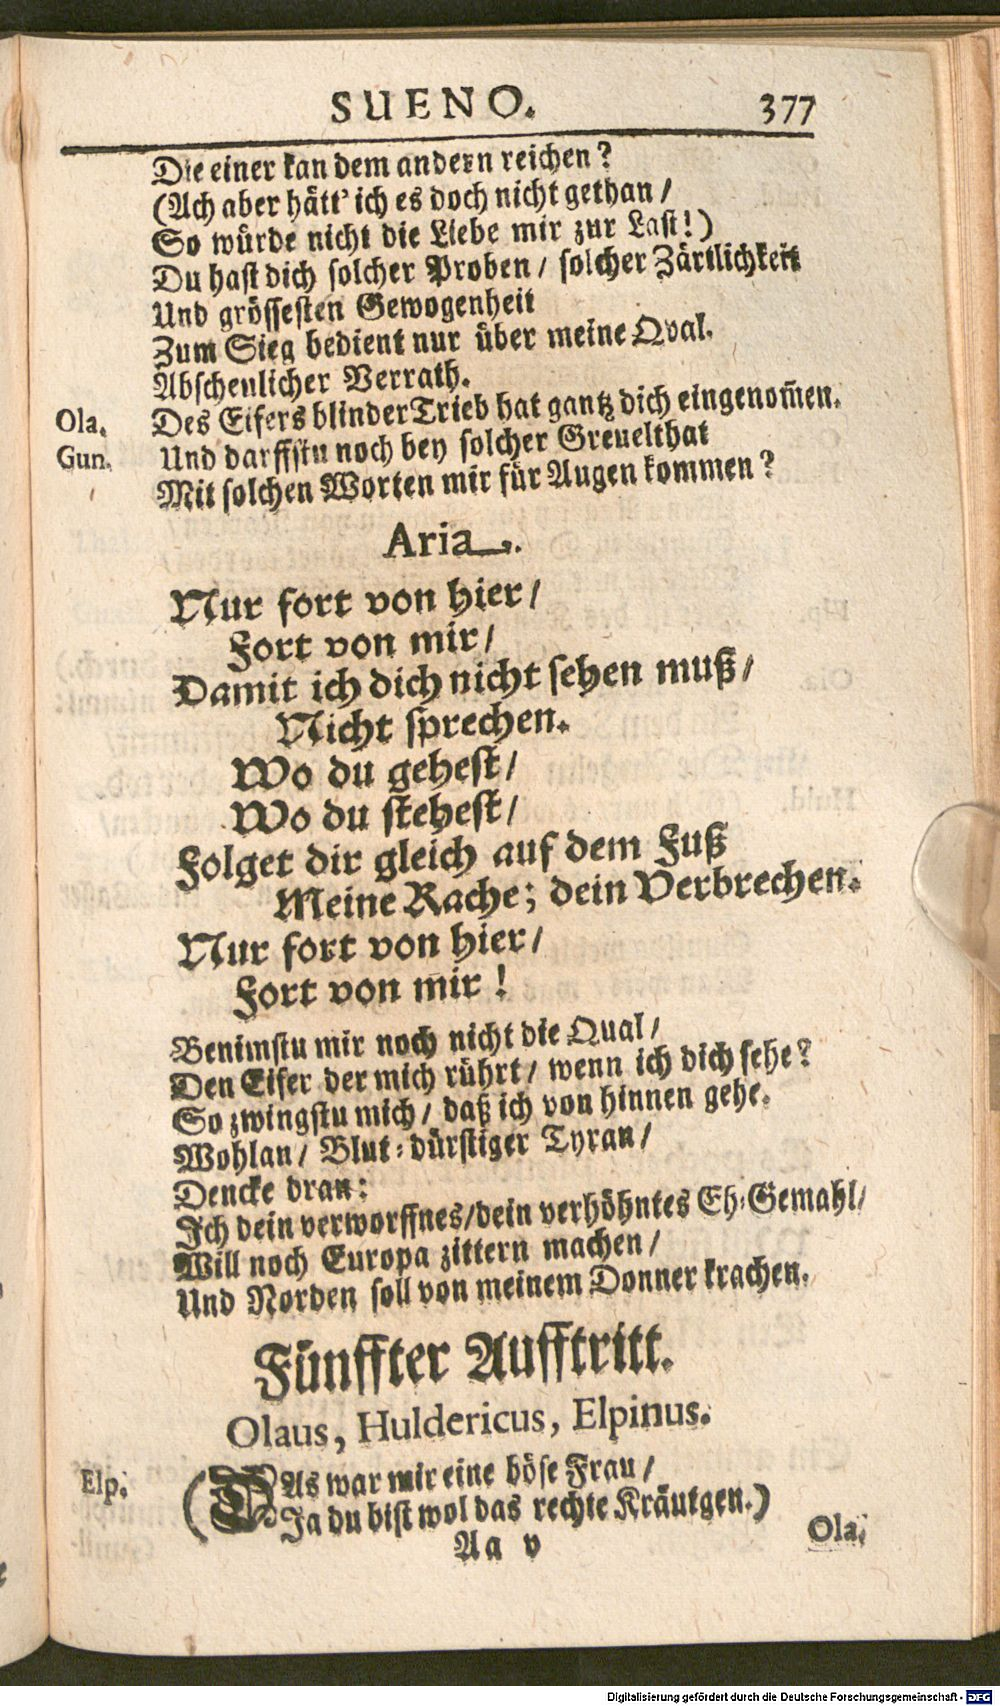 SUENO. 377
Die einer kan dem andern reichen?
(Ach aber hätt' ich es doch nicht gethan /
So würde nicht die Liebe mir zur Last!)
Du hast dich solcher Proben / solcher Zärtlichkeit
Und grössesten Gewogenheit
Zum Sieg bedient nur über meine Qval.
Abscheulicher Verrath.
Ola. Des Eifers blinder Trieb hat gantz dich eingenom̃en.
Gun. Und darffstu noch bey solcher Greuelthat
Mit solchen Worten mir für Augen kommen?
Aria.
Nur fort von hier /
Fort von mir /
Damit ich dich nicht sehen muß /
Nicht sprechen.
Wo du gehest /
Wo du stehest /
Folget dir gleich auf dem Fuß
Meine Rache; dein Verbrechen.
Nur fort von hier /
Fort von mir !
Benimstu mir noch nicht die Qual /
Den Eifer der mich rührt / wenn ich dich sehe?
So zwingstu mich / daß ich von hinnen gehe.
Wohlan / Blut-dürstiger Tyran /
Dencke dran:
Ich dein verworffnes / dein verhöhntes Eh-Gemahl /
Will noch Europa zittern machen /
Und Norden soll von meinem Donner krachen.
Fünffter Aufftritt.
Olaus, Huldericus, Elpinus.
Elp. (DAs war mir eine böse Frau /
Ja du bist wol das rechte Kräutgen.)
Aa v Ola.
Digitalisierung gefördert durch die Deutsche Forschungsgemeinschaft - DFG